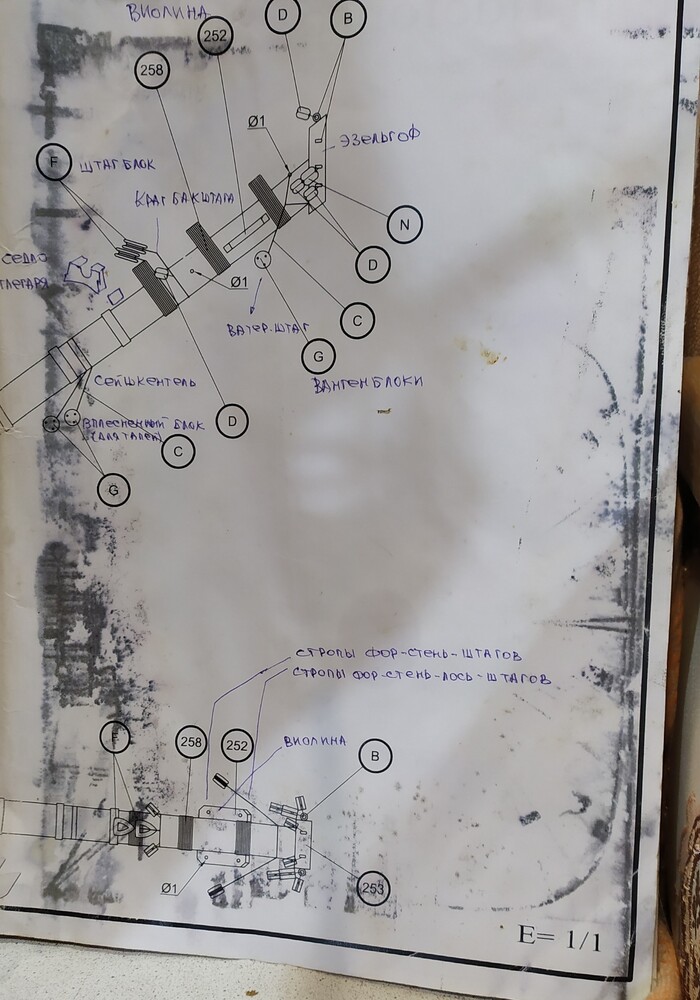 ВИОЛИНА
D
B
252
258
Ø1
ЭЗЕЛЬГОФ
F
ШТАГ БЛОК
КРАГ БАКШТАГА
N
СЕДЛО
D
Ø1
C
ВАТЕР-ШТАГ
G
ВАНТЕН БЛОКИ
СЕЙШКЕНТЕЛЬ
D
ВПЛЕСНЕННЫЙ БЛОК
C
G
СТРОПЫ ФОР-СТЕНЬ-ШТАГОВ
СТРОПЫ ФОР-СТЕНЬ-ЛОСЬ-ШТАГОВ
F
258
252
ВИОЛИНА
B
Ø1
253
E= 1/1